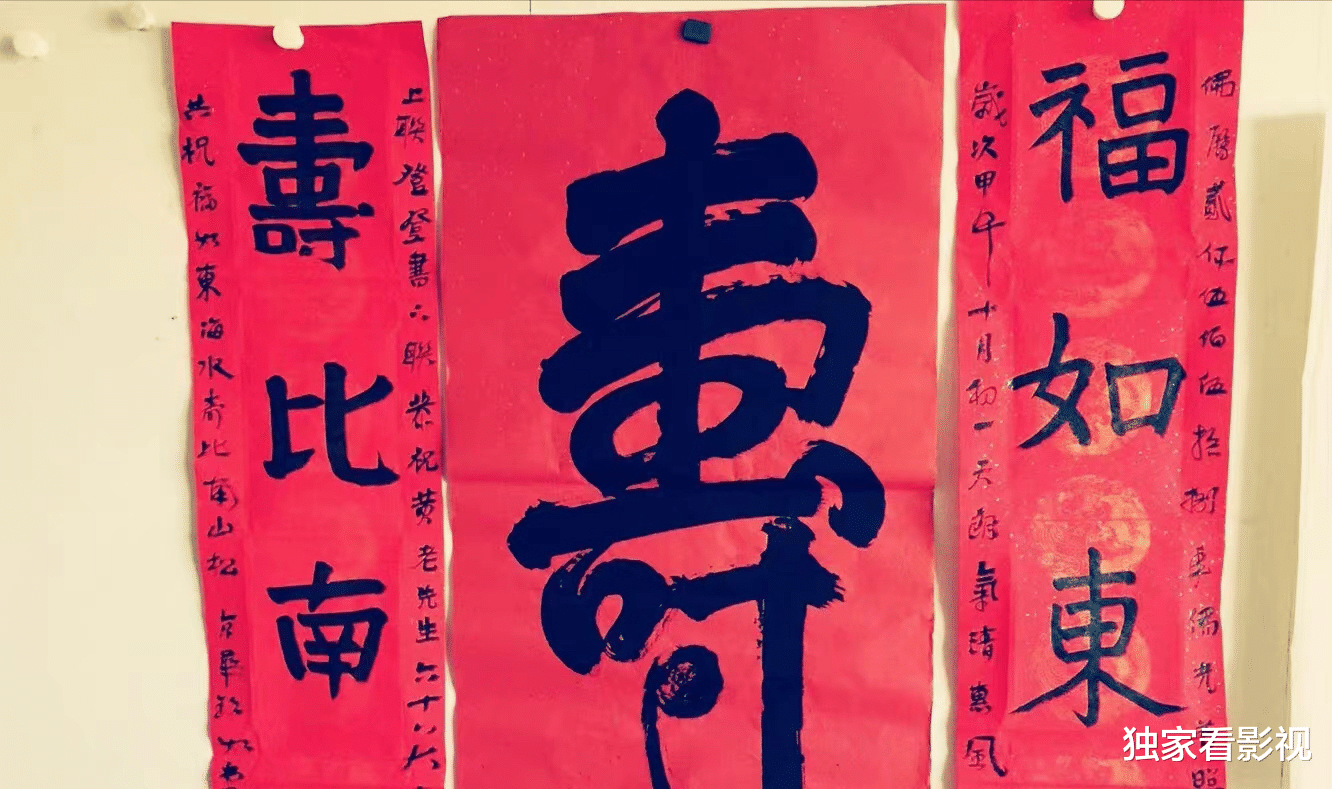 曆貳仟伍佰伍拾捌年光普照
福如東
歲次甲午十月初一天朗氣清惠風
壽
上聯登登書聯恭祝黃老先生六十六大
壽比南
共祝福如東海水壽比南山松
独家看影视